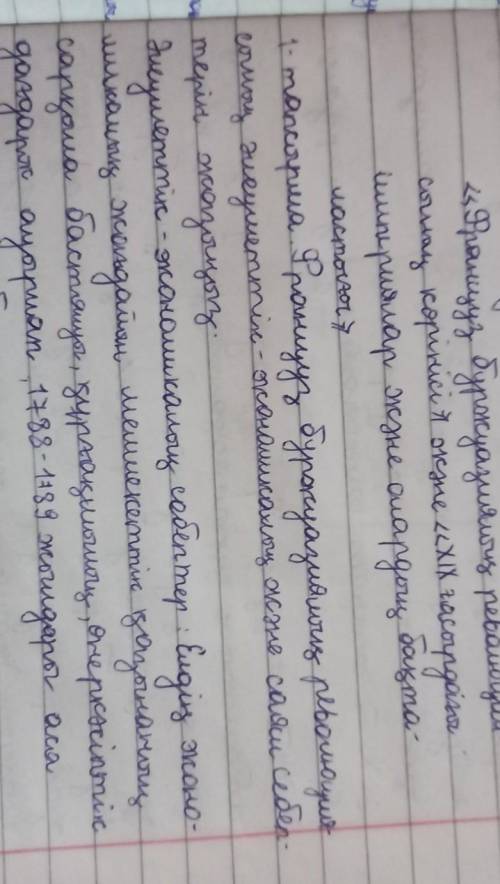 «Француз буржуазиялық революция
сының көрінісі» және «ХІХ ғасырдағы
империялар және олардың бақта-
ластығы»
1- тапсырма. Француз буржуазиялық революция
сының әлеуметтік-экономикалық және саяси себеп-
терін жазыңыз.
Әлеуметтік-экономикалық себептер: Елдің эконо-
микалық жағдайы, мемлекеттік қазынаның
сарқыла бастауы, құрғақшылық, өнеркәсіптік
дағдарыс ауыртпа, 1788-1789 жылдары аса